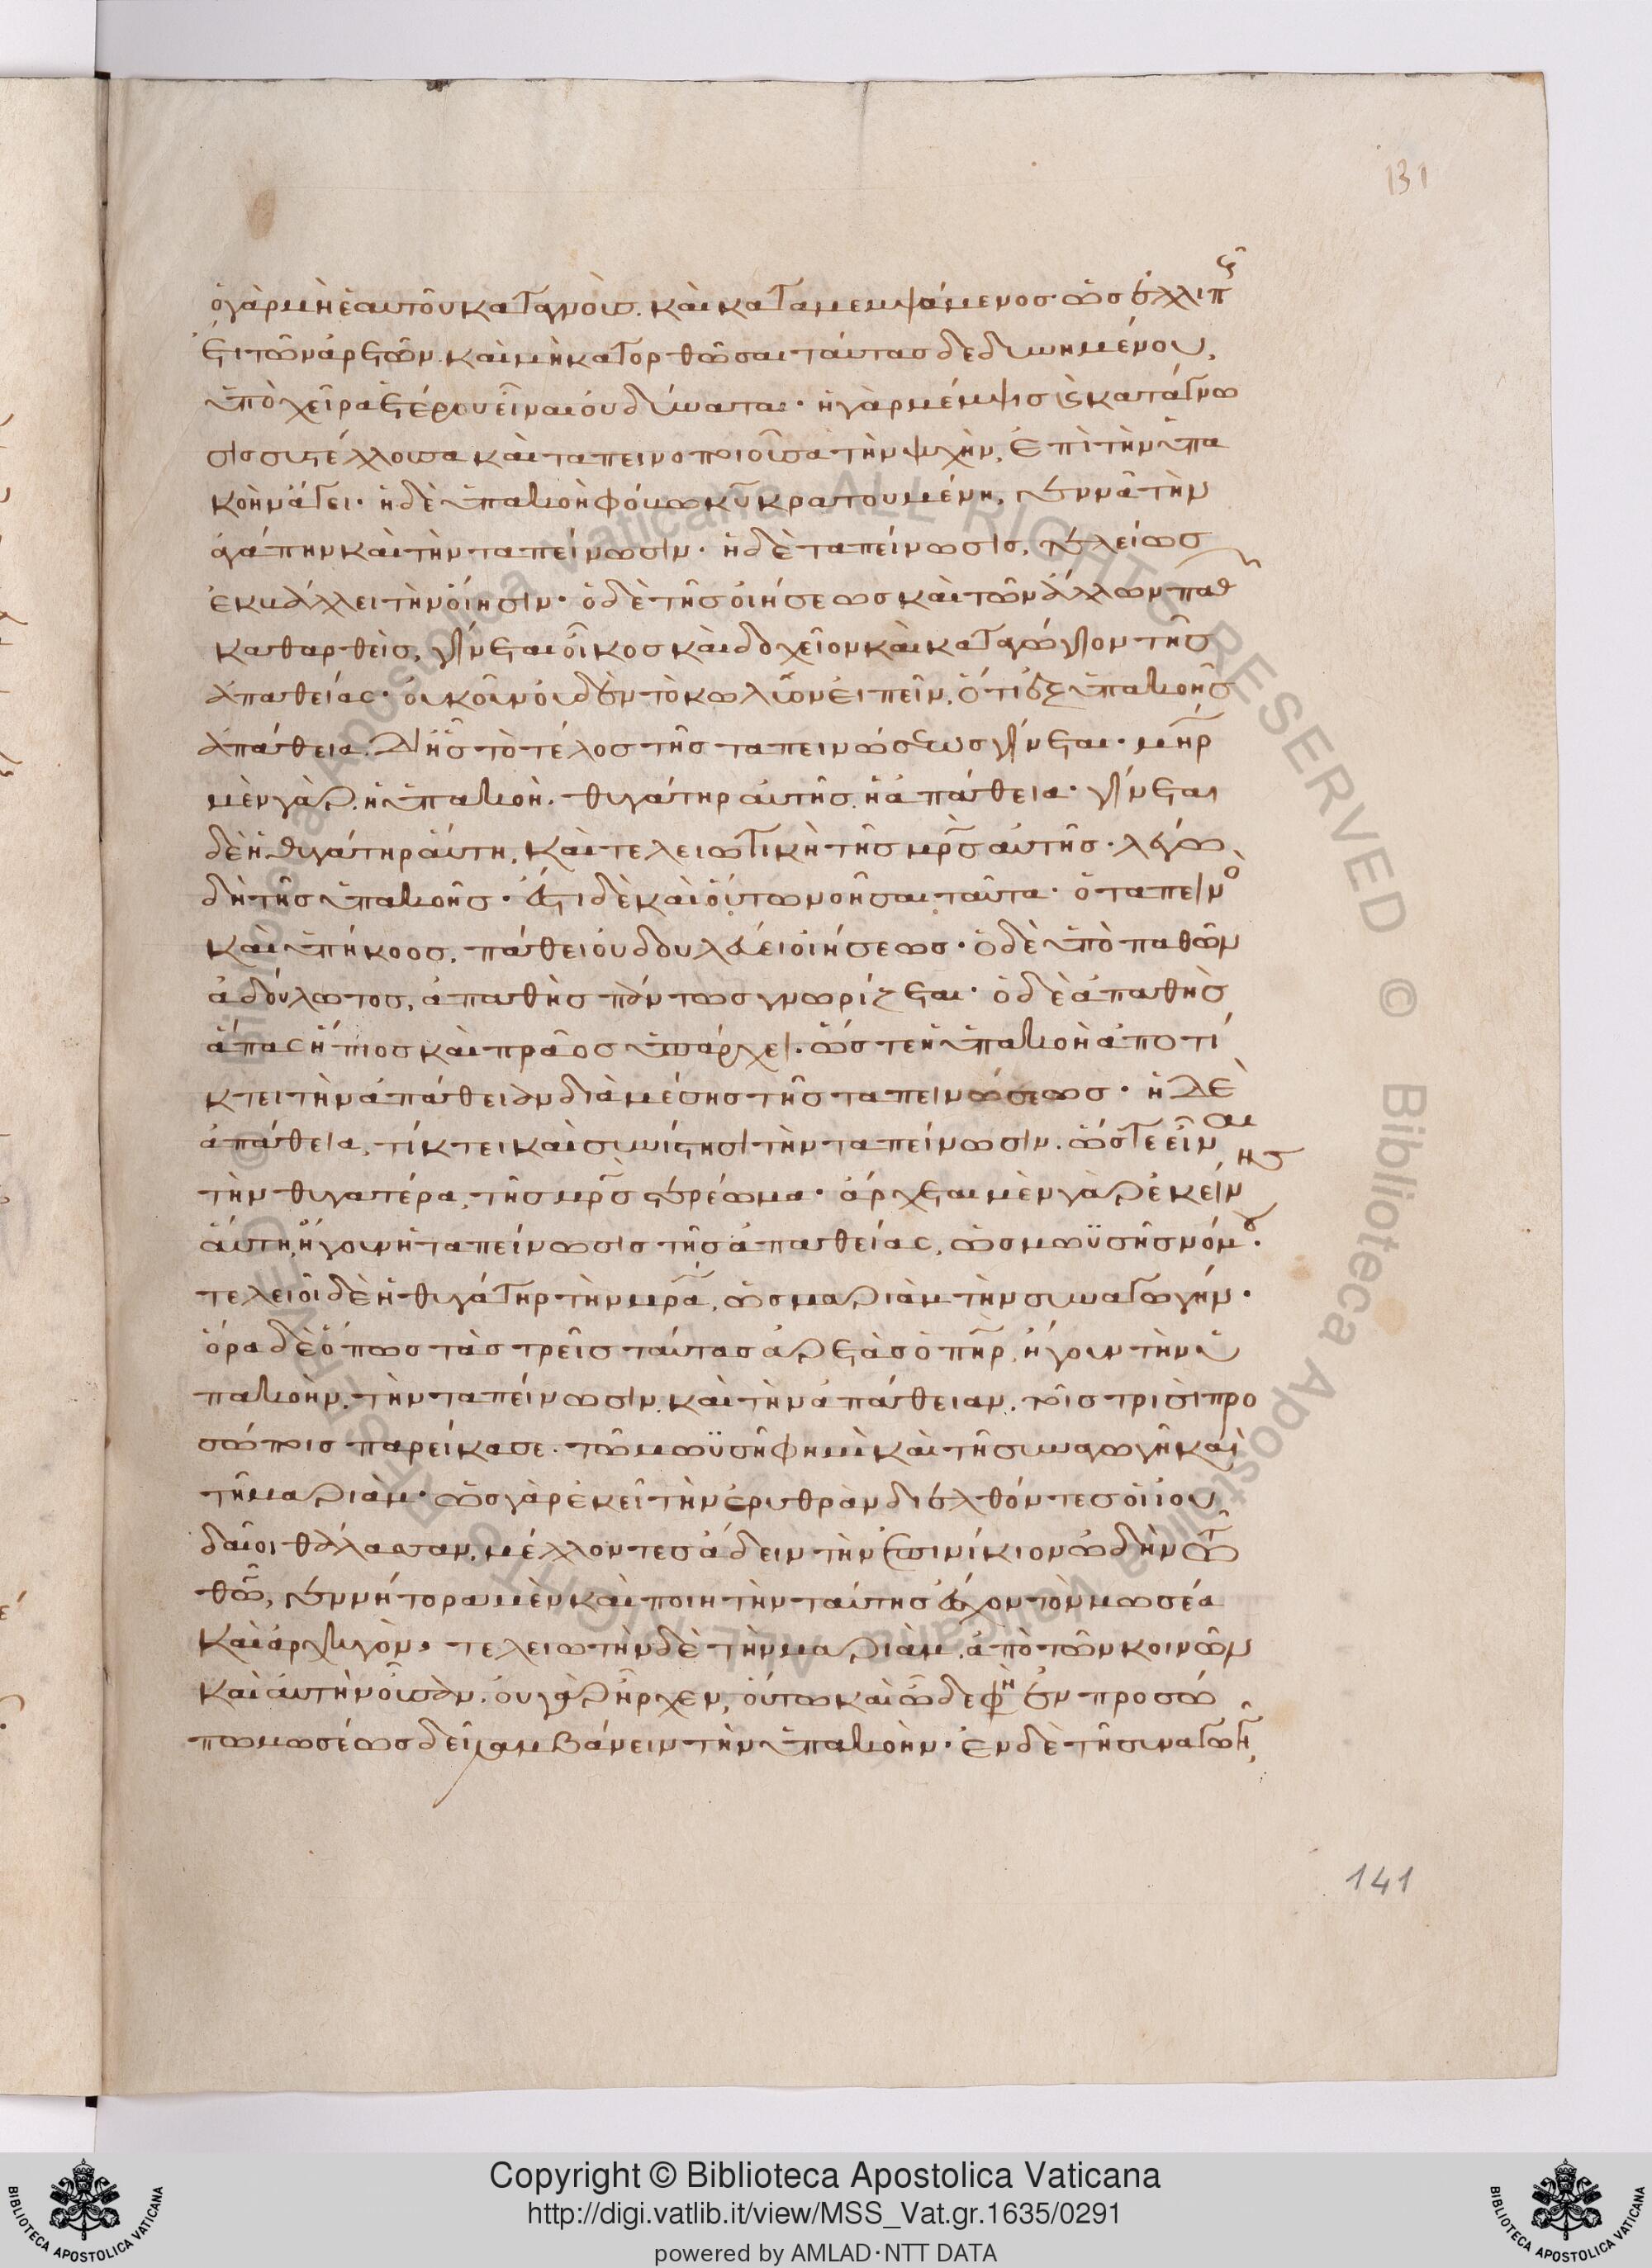 131
ὁ γὰρ μὴ ἑαυτοῦ καταγνοὺς. καὶ καταμεμψάμενος ὡς ἐλλιπῶς
ἔτι τῶν ἀρετῶν. καὶ μὴ κατορθῶσαι ταύτας δεδυνημένου,
ὑπὸ χεῖρα ἑτέρου εἶναι οὐ δύναται· ἡ γὰρ μέμψις καὶ κατάγνω
σις συστέλλουσα καὶ ταπεινοποιοῦσα τὴν ψυχὴν, ἐπὶ τὴν ὑπα
κοὴν ἄγει· ἡ δὲ ὑπακοὴ φόβω κυ κρατουμένη, γεννᾶ τὴν
ἀγάπην καὶ τὴν ταπείνωσιν· ἡ δὲ ταπείνωσις, τελείως
ἐκβάλλει τὴν οἴησιν· ὁ δὲ τῆς οἰήσεως καὶ τῶν ἄλλων παθ
καθαρθεὶς, γίνεται οἶκος καὶ δοχεῖον καὶ καταγώγιον τῆς
ἀπαθείας· οὐκοῦν οὐδὲν τὸ κωλῦον εἰπεῖν, ὅτι ἐξ ὑπακοῆς
ἀπάθεια. δι' ἧς τὸ τέλος τῆς ταπεινώσεως γίνεται· μηρ
μὲν γὰρ ἡ ὑπακοὴ. θυγάτηρ αὐτῆς ἡ ἀπάθεια· γίνεται
δὲ ἡ θυγάτηρ αὕτη, καὶ τελειωτικὴ τῆς μρς αὐτῆς· λέγω
δὴ τῆς ὑπακοῆς· ἔτι δὲ καὶ οὕτω νοῆσαι ταῦτα· ὁ ταπεινὸ
καὶ ὑπήκοος, πάθει οὐ δουλεύει οἰήσεως· ὁ δὲ ὑπὸ παθῶν
ἀδούλωτος, ἀπαθὴς πάντως γνωρίζεται· ὁ δὲ ἀπαθὴς
ἅπας ἤπιος καὶ πρᾶος ὑπάρχει. ὥστε ἡ ὑπακοὴ ἀποτί
κτει τὴν ἀπάθειαν διὰ μέσης τῆς ταπεινώσεως· ἡ δὲ
ἀπάθεια, τίκτει καὶ συνίστησι τὴν ταπείνωσιν. ὥστε εἶναι
τὴν θυγατέρα, τῆς μρς στερέωμα· ἄρχεται μὲν γὰρ ἐκείνης
αὕτη, ἤγουν ἡ ταπείνωσις τῆς ἀπαθείας, ὡς μωϋσῆς νόμου.
τελειοῖ δὲ ἡ θυγάτηρ τὴν μρα, ὡς μαριὰμ τὴν συναγωγήν·
ὅρα δὲ ὅπως τὰς τρεῖς ταύτας ἀρετὰς ὁ πηρ, ἤγουν τὴν ὑ
πακοὴν. τὴν ταπείνωσιν. καὶ τὴν ἀπάθειαν. τοῖς τρισὶ προ
σώποις παρείκασε. τῶ μωϋσῆ φημὶ καὶ τῆ συναγωγῆ καὶ
τῆ μαριὰμ· ὡς γὰρ ἐκεῖ τὴν ἐρυθρὰν διελθόντες οἱ ἰου
δαῖοι θάλασσαν, μέλλοντες ἄδειν τὴν ἐπινίκιον ὠδὴν τῶ
θω, γεννήτορα μὲν καὶ ποιητὴν ταύτης εἶχον τὸν μωσέα
καὶ ἀρχηγὸν· τελειωτὴν δὲ τὴν μαριὰμ. ἀπὸ τῶν κοινῶν
καὶ αὐτὴν οὖσαν. οὐ γὰρ ἦρχεν, οὕτω καὶ ὧδε φη ἐν προσώ
πω μωσέως δεῖ λαμβάνειν τὴν ὑπακοὴν· ἐν δὲ τῆ συναγωγῆ,
141
Copyright © Biblioteca Apostolica Vaticana
http://digi.vatlib.it/view/MSS_Vat.gr.1635/0291
powered by AMLAD·NTT DATA